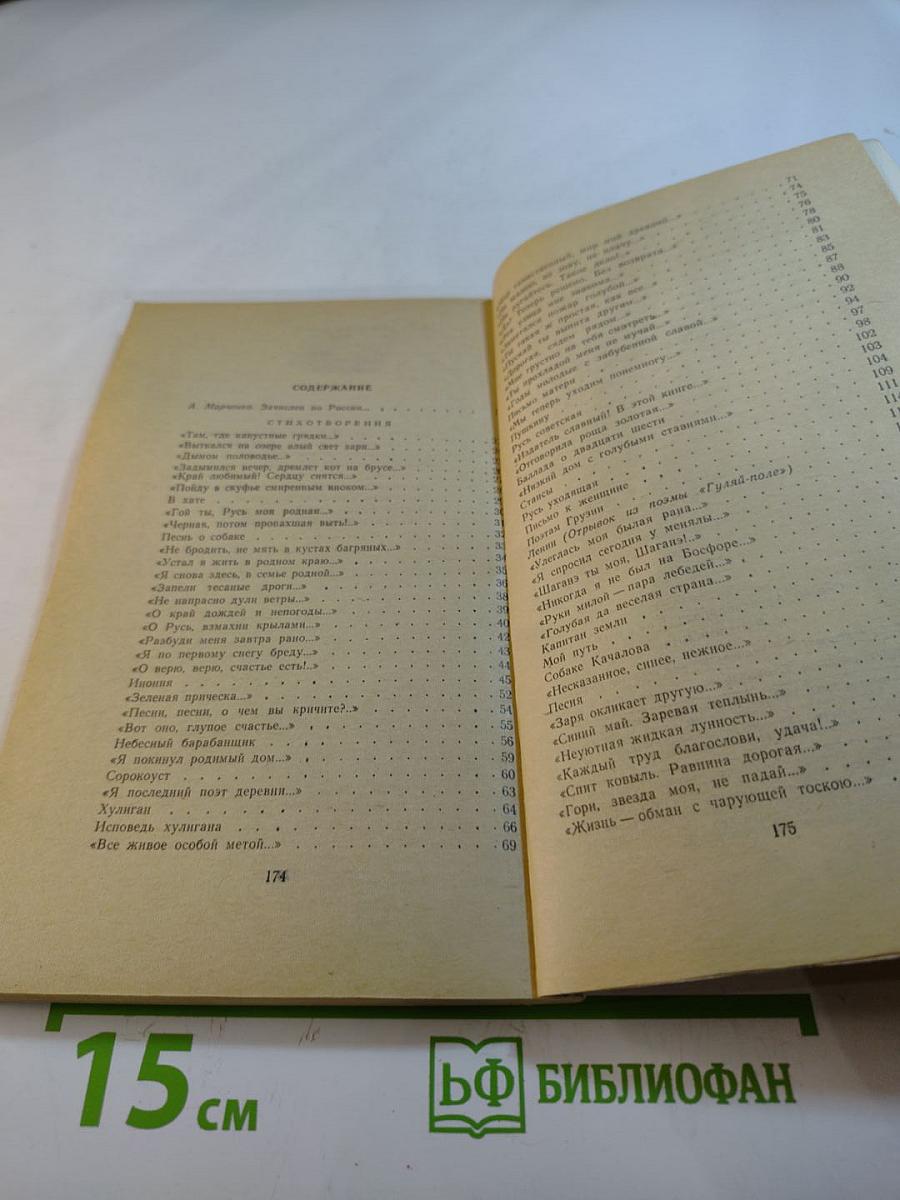 СОДЕРЖАНИЕ
А. Марченко. Зачислен по России...
СТИХОТВОРЕНИЯ
«Там, где капустные грядки...»
«Выткался на озере алый свет зари...»
«Дымом половодье...»
«Задымился вечер, дремлет кот на брусе...»
«Край любимый! Сердцу снятся...»
«Пойду в скуфье смиренным иноком...»
В хате
«Гой ты, Русь моя родная...» 30
«Черная, потом пропахшая выть!..» 31
Песнь о собаке 32
«Не бродить, не мять в кустах багряных...» 33
«Устал я жить в родном краю...» 34
«Я снова здесь, в семье родной...» 35
«Запели тесаные дроги...» 36
«Не напрасно дули ветры...» 38
«О край дождей и непогоды...» 39
«О Русь, взмахни крылами...» 40
«Разбуди меня завтра рано...» 42
«Я по первому снегу бреду...» 43
«О верю, верю, счастье есть!..» 44
Инония 45
«Зеленая прическа...» 52
«Песни, песни, о чем вы кричите?..» 54
«Вот оно, глупое счастье...» 55
Небесный барабанщик 56
«Я покинул родимый дом...» 59
Сорокоуст 60
«Я последний поэт деревни...» 63
Хулиган 64
Исповедь хулигана 66
«Все живое особой метой...» 69
174
таинственный, мир мой древний...» 71
не зову, не плачу...» 74
Такое дело! 75
Теперь решено. Без возврата...» 76
улица мне знакома...» 78
пожар голубой...» 80
«Ты такая ж простая, как все...» 81
«Пускай ты выпита другим...» 83
«Дорогая, сядем рядом...» 85
«Мне грустно на тебя смотреть...» 87
«Ты прохладой меня не мучай...» 88
«Годы молодые с забубенной славой...» 90
Письмо матери 92
«Мы теперь уходим понемногу...» 94
Пушкину 97
Русь советская 98
«Издатель славный! В этой книге...» 102
«Отговорила роща золотая...» 103
Баллада о двадцати шести 104
«Низкий дом с голубыми ставнями...» 109
Стансы
Русь уходящая
Письмо к женщине
Поэтам Грузии
Ленин (Отрывок из поэмы «Гуляй-поле»)
«Улеглась моя былая рана...»
«Я спросил сегодня у менялы...»
«Шаганэ ты моя, Шаганэ!..»
«Никогда я не был на Босфоре...»
«Руки милой — пара лебедей...»
«Голубая да веселая страна...»
Капитан земли
Мой путь
Собаке Качалова
«Несказанное, синее, нежное...»
Песня
«Заря окликает другую...»
«Синий май. Заревая теплынь...»
«Неуютная жидкая лунность...»
«Каждый труд благослови, удача!..»
«Спит ковыль. Равнина дорогая...»
«Гори, звезда моя, не падай...»
«Жизнь — обман с чарующей тоскою...»
175
15 см
БФ БИБЛИОФАН